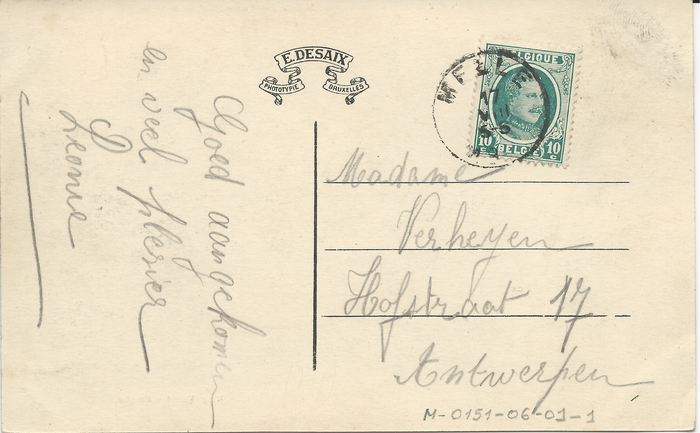 E. DESAIX
PHOTOTYPIE BRUXELLES
BELGIQUE
10 c 10 c
BELGIË
MELLE
Goed aangekomen
en veel plezier
Leonie
Madame
Verheyen
Hofstraat 17
Antwerpen
M-0151-06-01-1